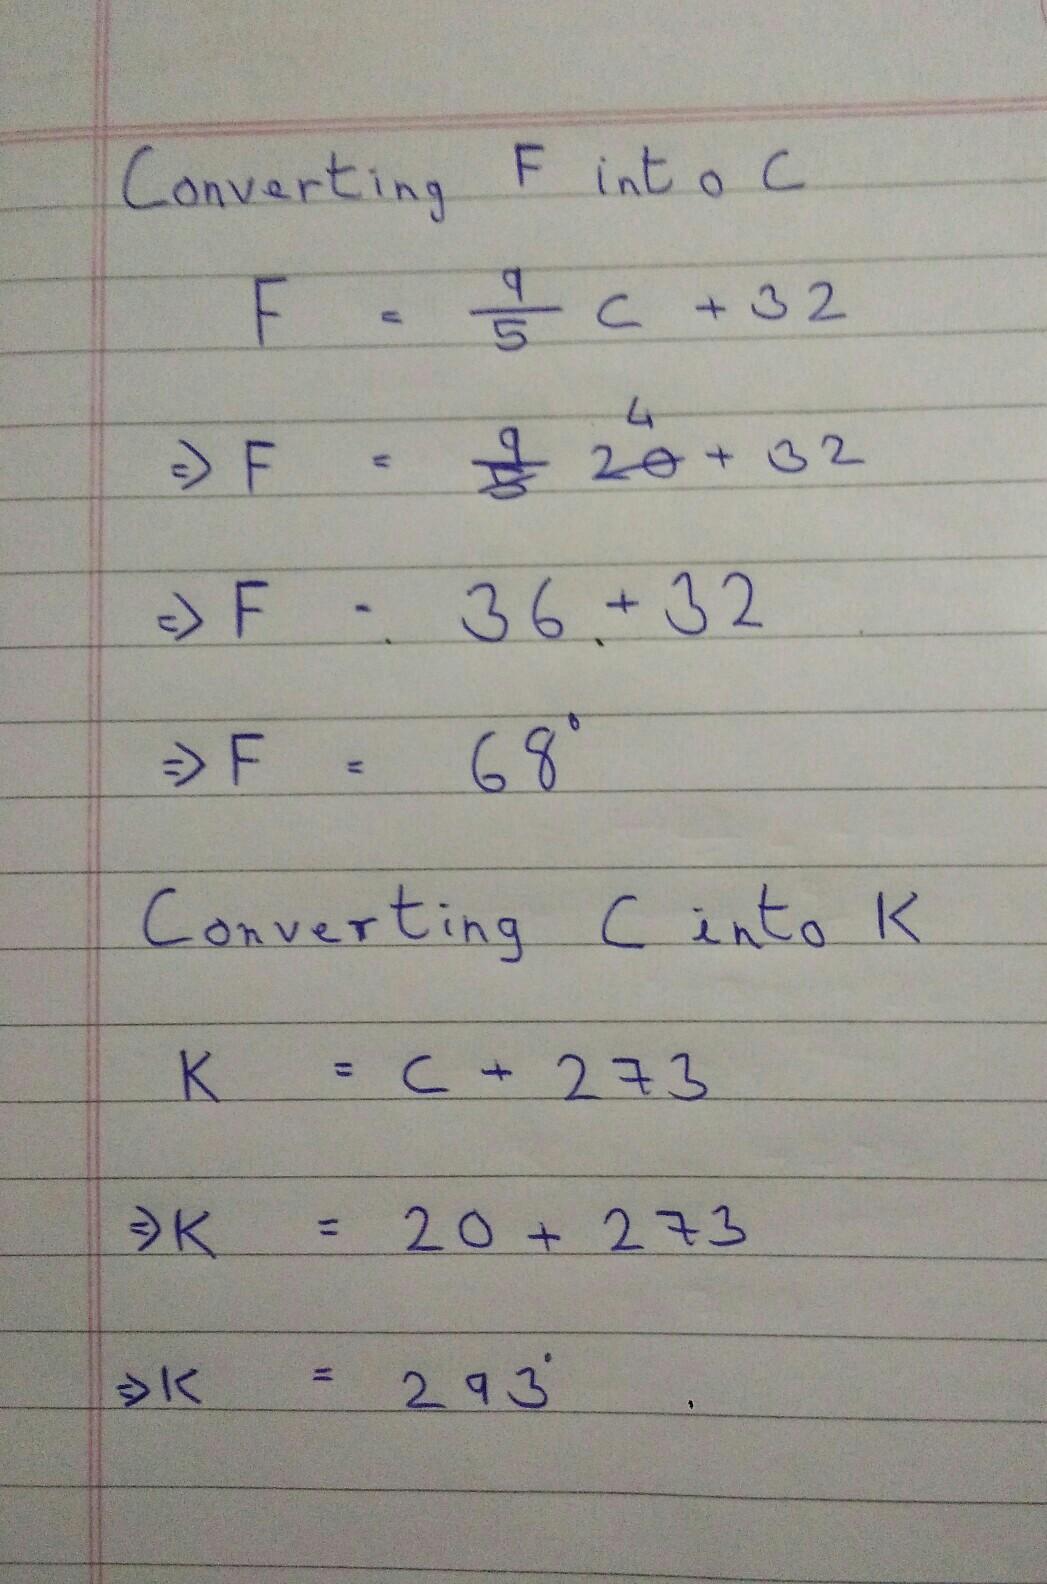 Converting F into C
F = 9/5 C + 32
⇒ F = 9/5 20 4 + 32
⇒ F = 36 + 32
⇒ F = 68°
Converting C into K
K = C + 273
⇒ K = 20 + 273
⇒ K = 293°